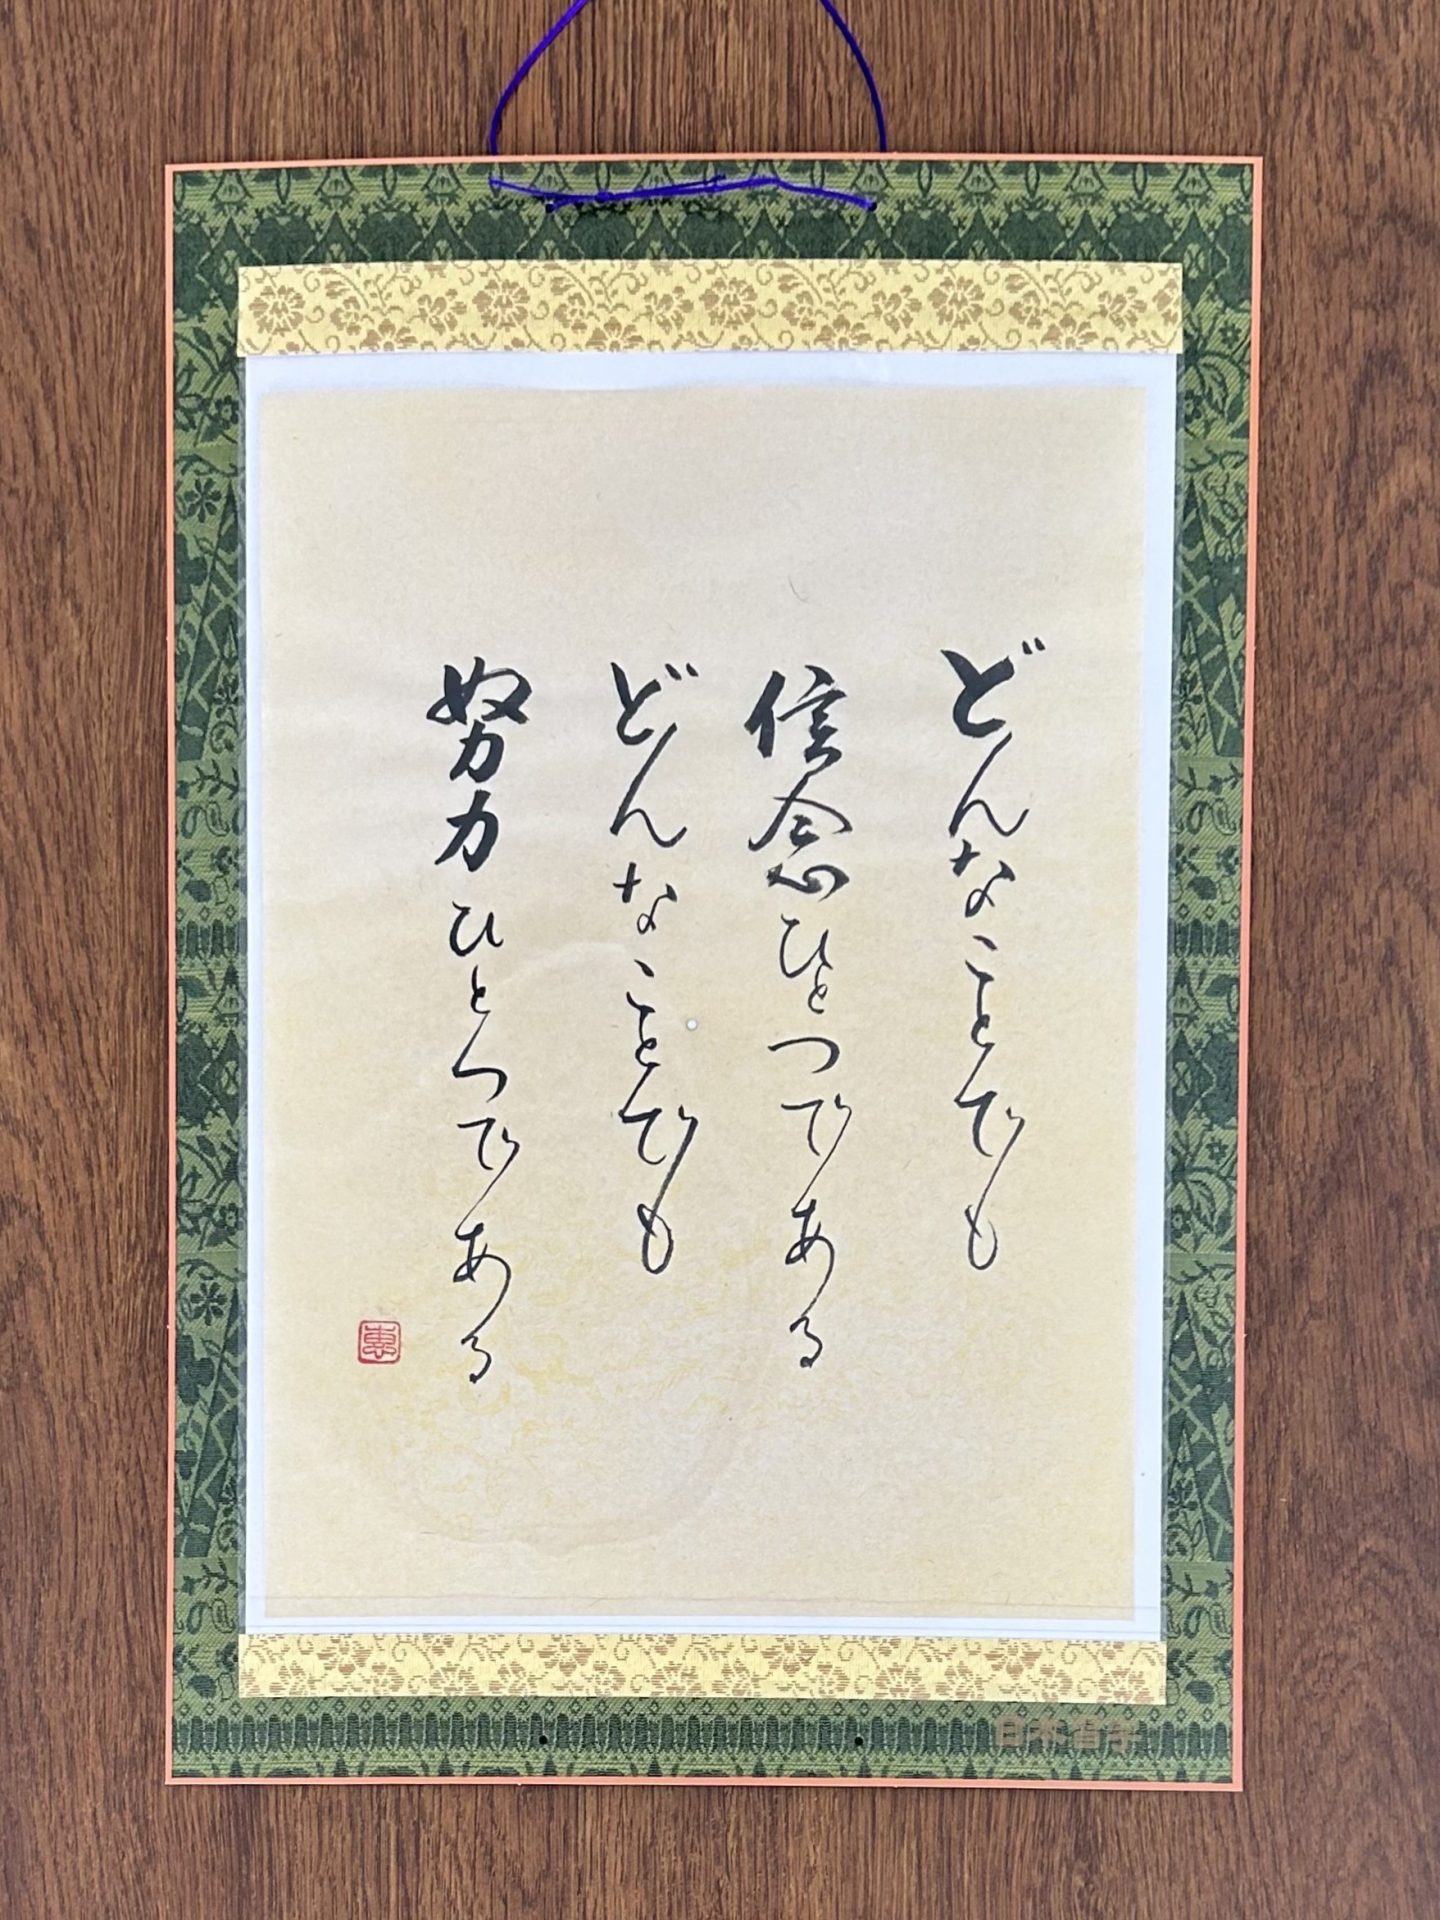 どんなことでも
信念ひとつである
どんなことでも
努力ひとつである
恵
日本習字